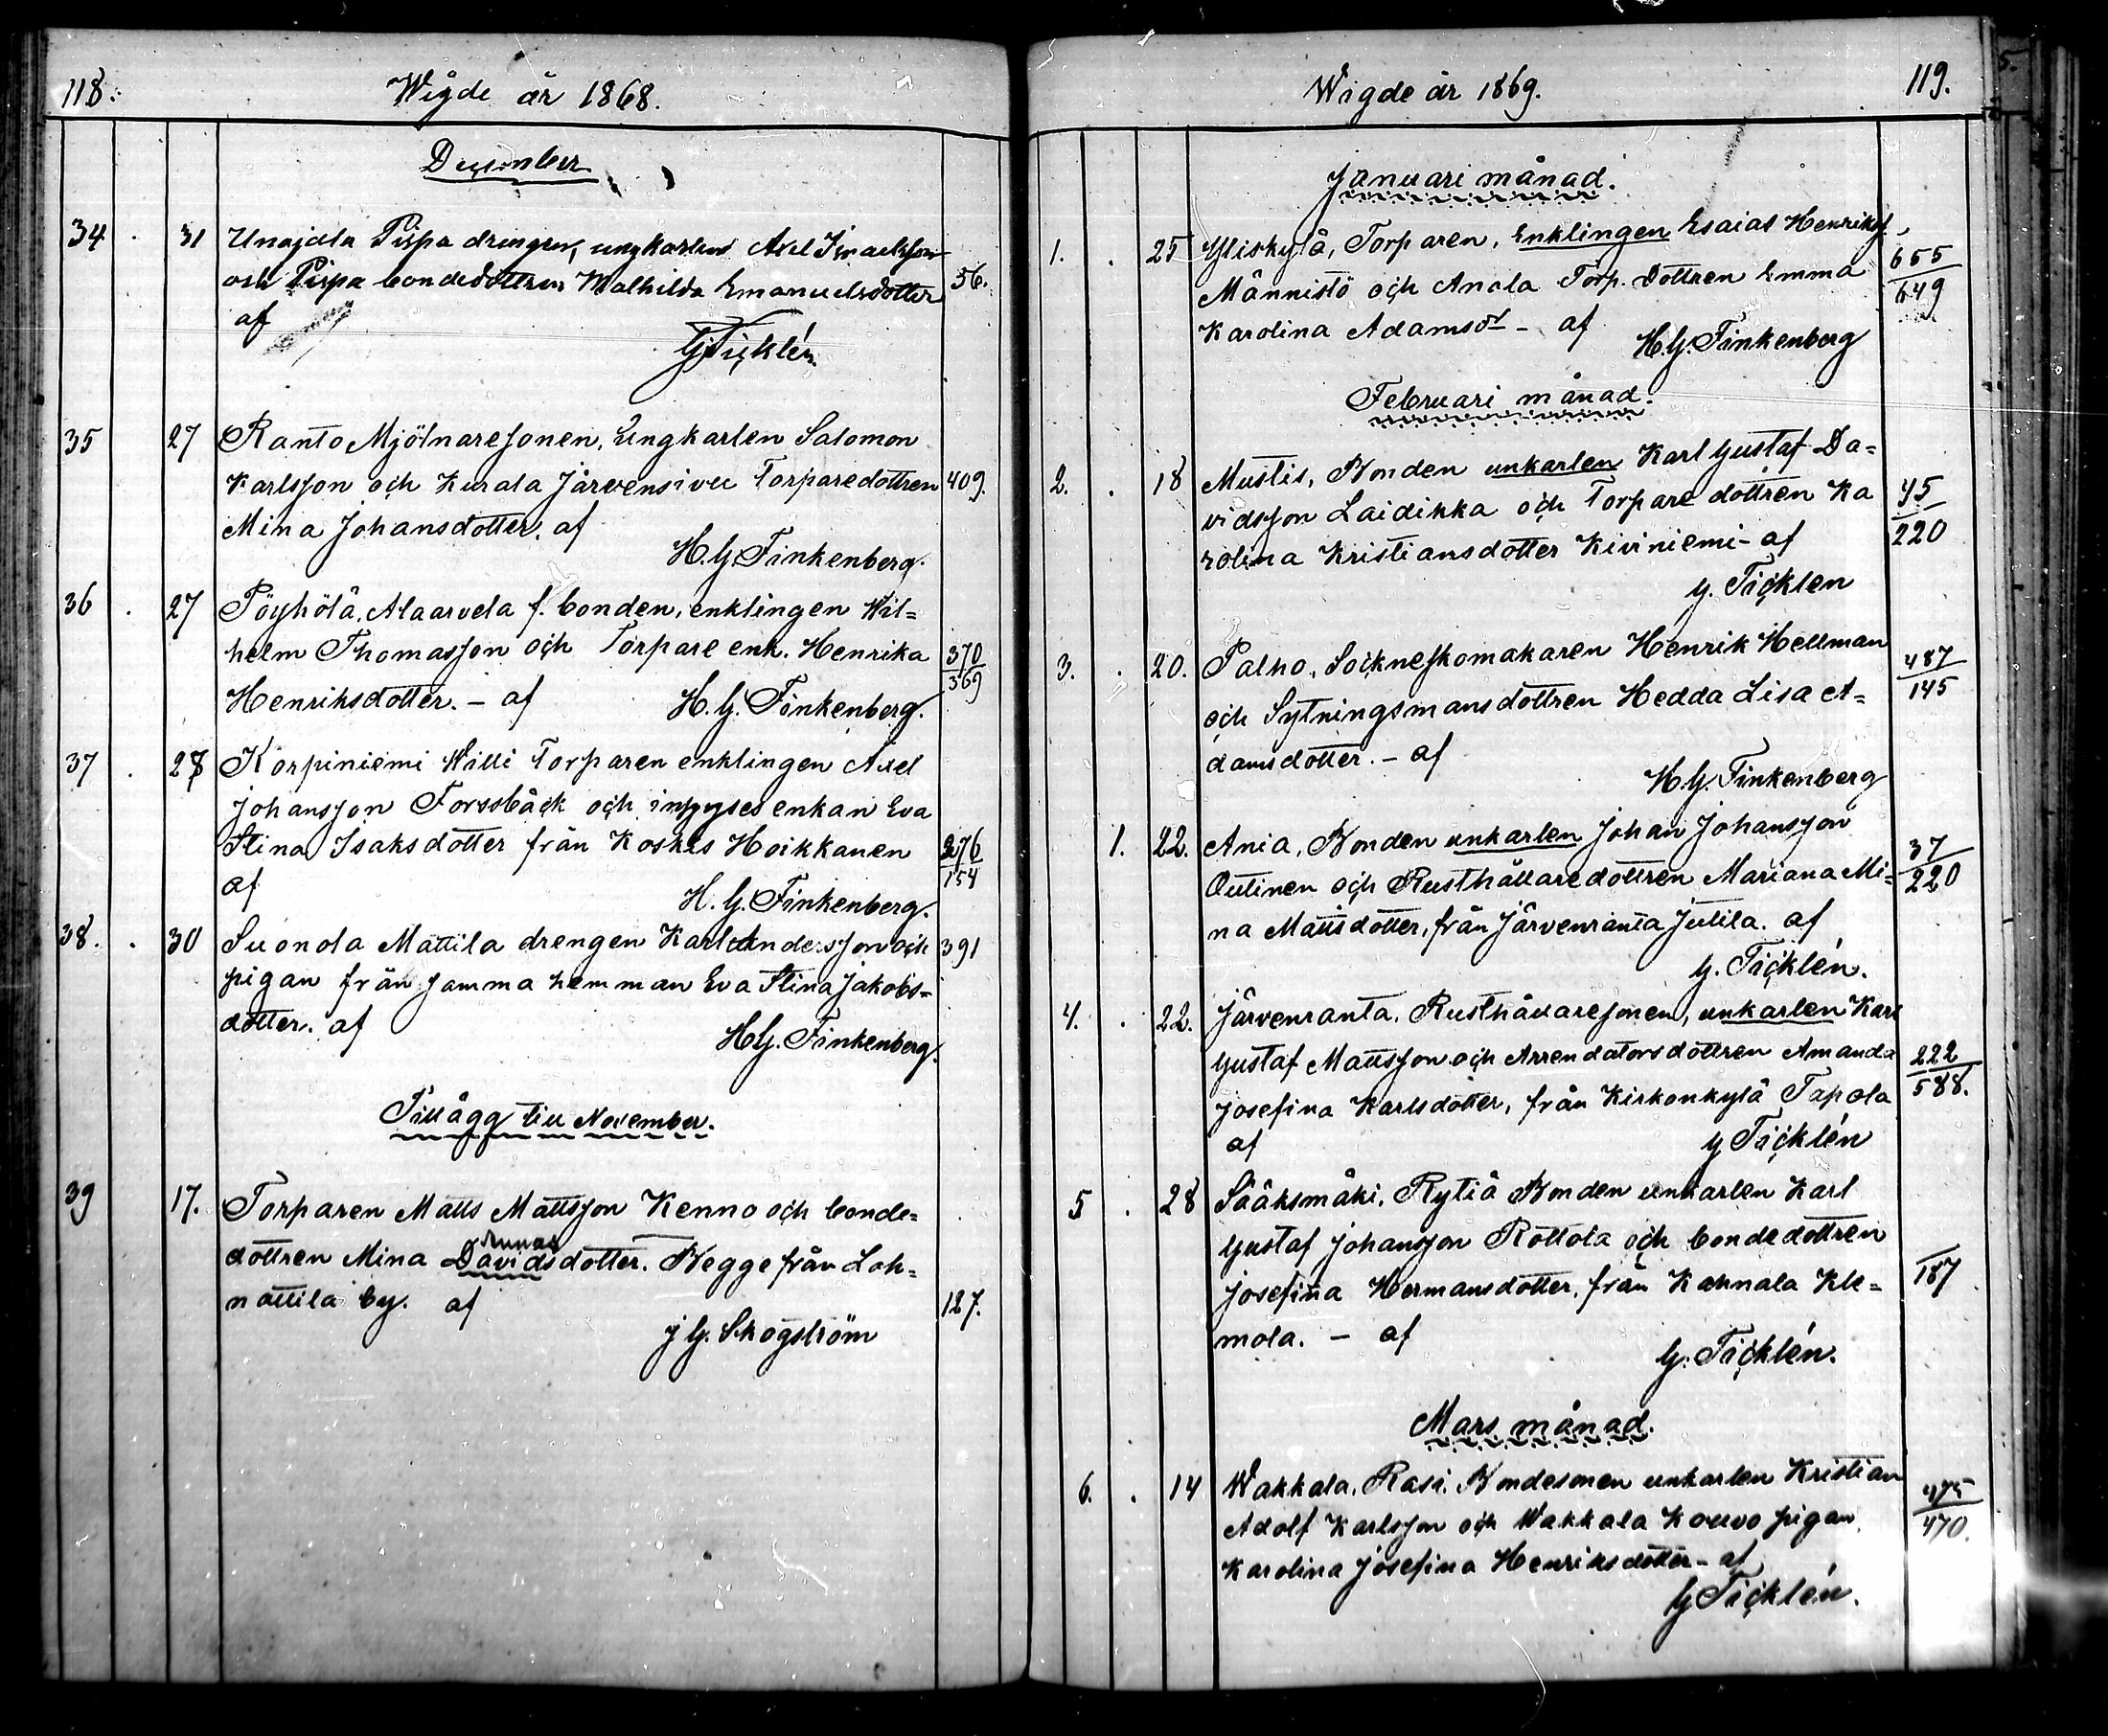 118.
Wigde år 1868.
December
34 . 31 Unajala Pispa drengen, ungkarlen Axel Isracksson
och Pispa bondedottren Mathilda Emanuelsdotter 56.
af
G Ticklén.
35 27 Ranto Mjölnaresonen, Ungkarlen Salomon
Karlsson och Kurala Järvensivu Torparedottren 409.
Mina Johansdotter. af
H. G. Finkenberg.
36 . 27 Pöyhölä, Alaarvela f. bonden, enklingen Wil=
helm Thomasson och Torpare enk. Henrika 370
369
Henriksdotter. – af H. G. Finkenberg.
37 . 27 Korpiniemi Willi Torparen enklingen Axel
Johansson Forssbäck och inhyses enkan Eva
Stina Isaksdotter från Koskis Hoikkanen 276
154
af H. G. Finkenberg.
38. . 30 Suonola Mattila drengen Karl Andersson och 391
pigan från samma hemman Eva Stina Jakobs=
dotter. af
H G. Finkenberg.
Tillägg till November.
39 17. Torparen Matts Mattsson Kenno och bonde=
dottren Mina Davidsdotter. Begge från Loh=
nottila by. af 127.
J G. Skogström
119.
Wigde år 1869.
Januari månad.
1. . 25 Yliskylä, Torparen, Enklingen Esaias Henrikss.
Männistö och Anola Torp. Dottren Emma 655
649
Karolina Adamsdt – af
H. G. Finkenberg
Februari månad.
2. . 18 Mustis, Bonden unkarlen Karl Gustaf Da=
vidsson Laidikka och Torpare dottren Ka 45
220
rolina Kristiansdotter Kiviniemi – af
G. Ticklen
3. . 20. Palho, Sockneskomakaren Henrik Hellman 487
145
och Sytningsmansdottren Hedda Lisa A=
damsdotter. – af
H G. Finkenberg
1. 22. Ania, Bonden unkarlen Johan Johansson 37
220
Outinen och Rusthållaredottren Mariana Mi=
na Mattsdotter, från Järvenranta Jutila. af
G. Ticklén.
4. . 22. Järvenranta, Rusthållaresonen, unkarlen Karl
Gustaf Mattsson och Arrendatorsdottren Amanda 222
588.
Josefina Karlsdotter, från Kirkonkylä Tapola
af G Ticklén
5 . 28 Sääksmäki, Rytiä Bonden unkarlen Karl
Gustaf Johansson Rottola och bondedottren
Josefina Hermansdotter, från Kannala Kle= 187
mola. – af
G. Ticklén.
Mars månad.
6. . 14 Wakkala, Rasi, Bondesonen unkarlen Kristian 475
Adolf Karlsson och Wakkala Kouvo pigan 470.
Karolina Josefina Henriksdotter – af
G Ticklén.